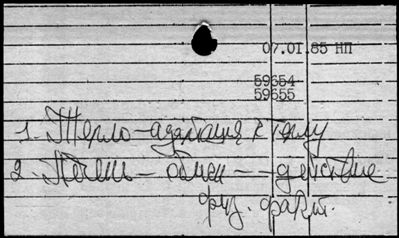 07.01.85 НП
59654
59655
1. Тепло-адаптация к теплу
2. Печень – обмен – действие
физ. факт.